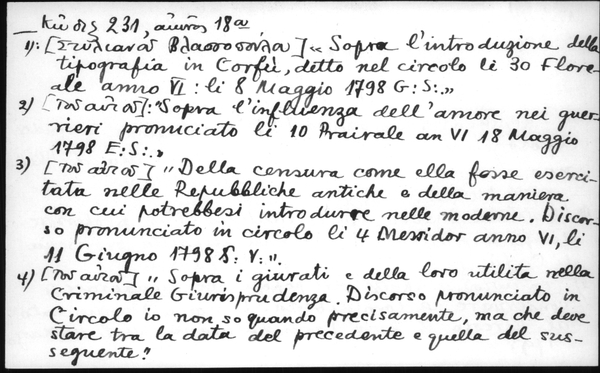 Κῶδιξ 231, αἰῶνος 18ου
1): [Στυλιανοῦ Βλασσοπούλου] « Sopra l'introduzione della
tipografia in Corfù, detto nel circolo li 30 Flore-
ale anno VI : li 8 Maggio 1798 G: S:.»
2) [τοῦ αὐτοῦ]: "Sopra l'influenza dell'amore nei guer-
rieri pronuciato li 10 Prairale an VI 18 Maggio
1798 E: S:.»
3) [τοῦ αὐτοῦ] " Della censura come ella fosse eserci-
tata nelle Repubbliche antiche e della maniera
con cui potrebbesi introdurre nelle moderne. Discor-
so pronunciato in circolo li 4 Messidor anno VI, li
11 Giugno 1798 S: V:".
4) [τοῦ αὐτοῦ] " Sopra i giurati e della loro utilita nella
Criminale Giurisprudenza. Discorso pronunciato in
Circolo io non so quando precisamente, ma che deve
stare tra la data del precedente e quella del sus-
seguente."